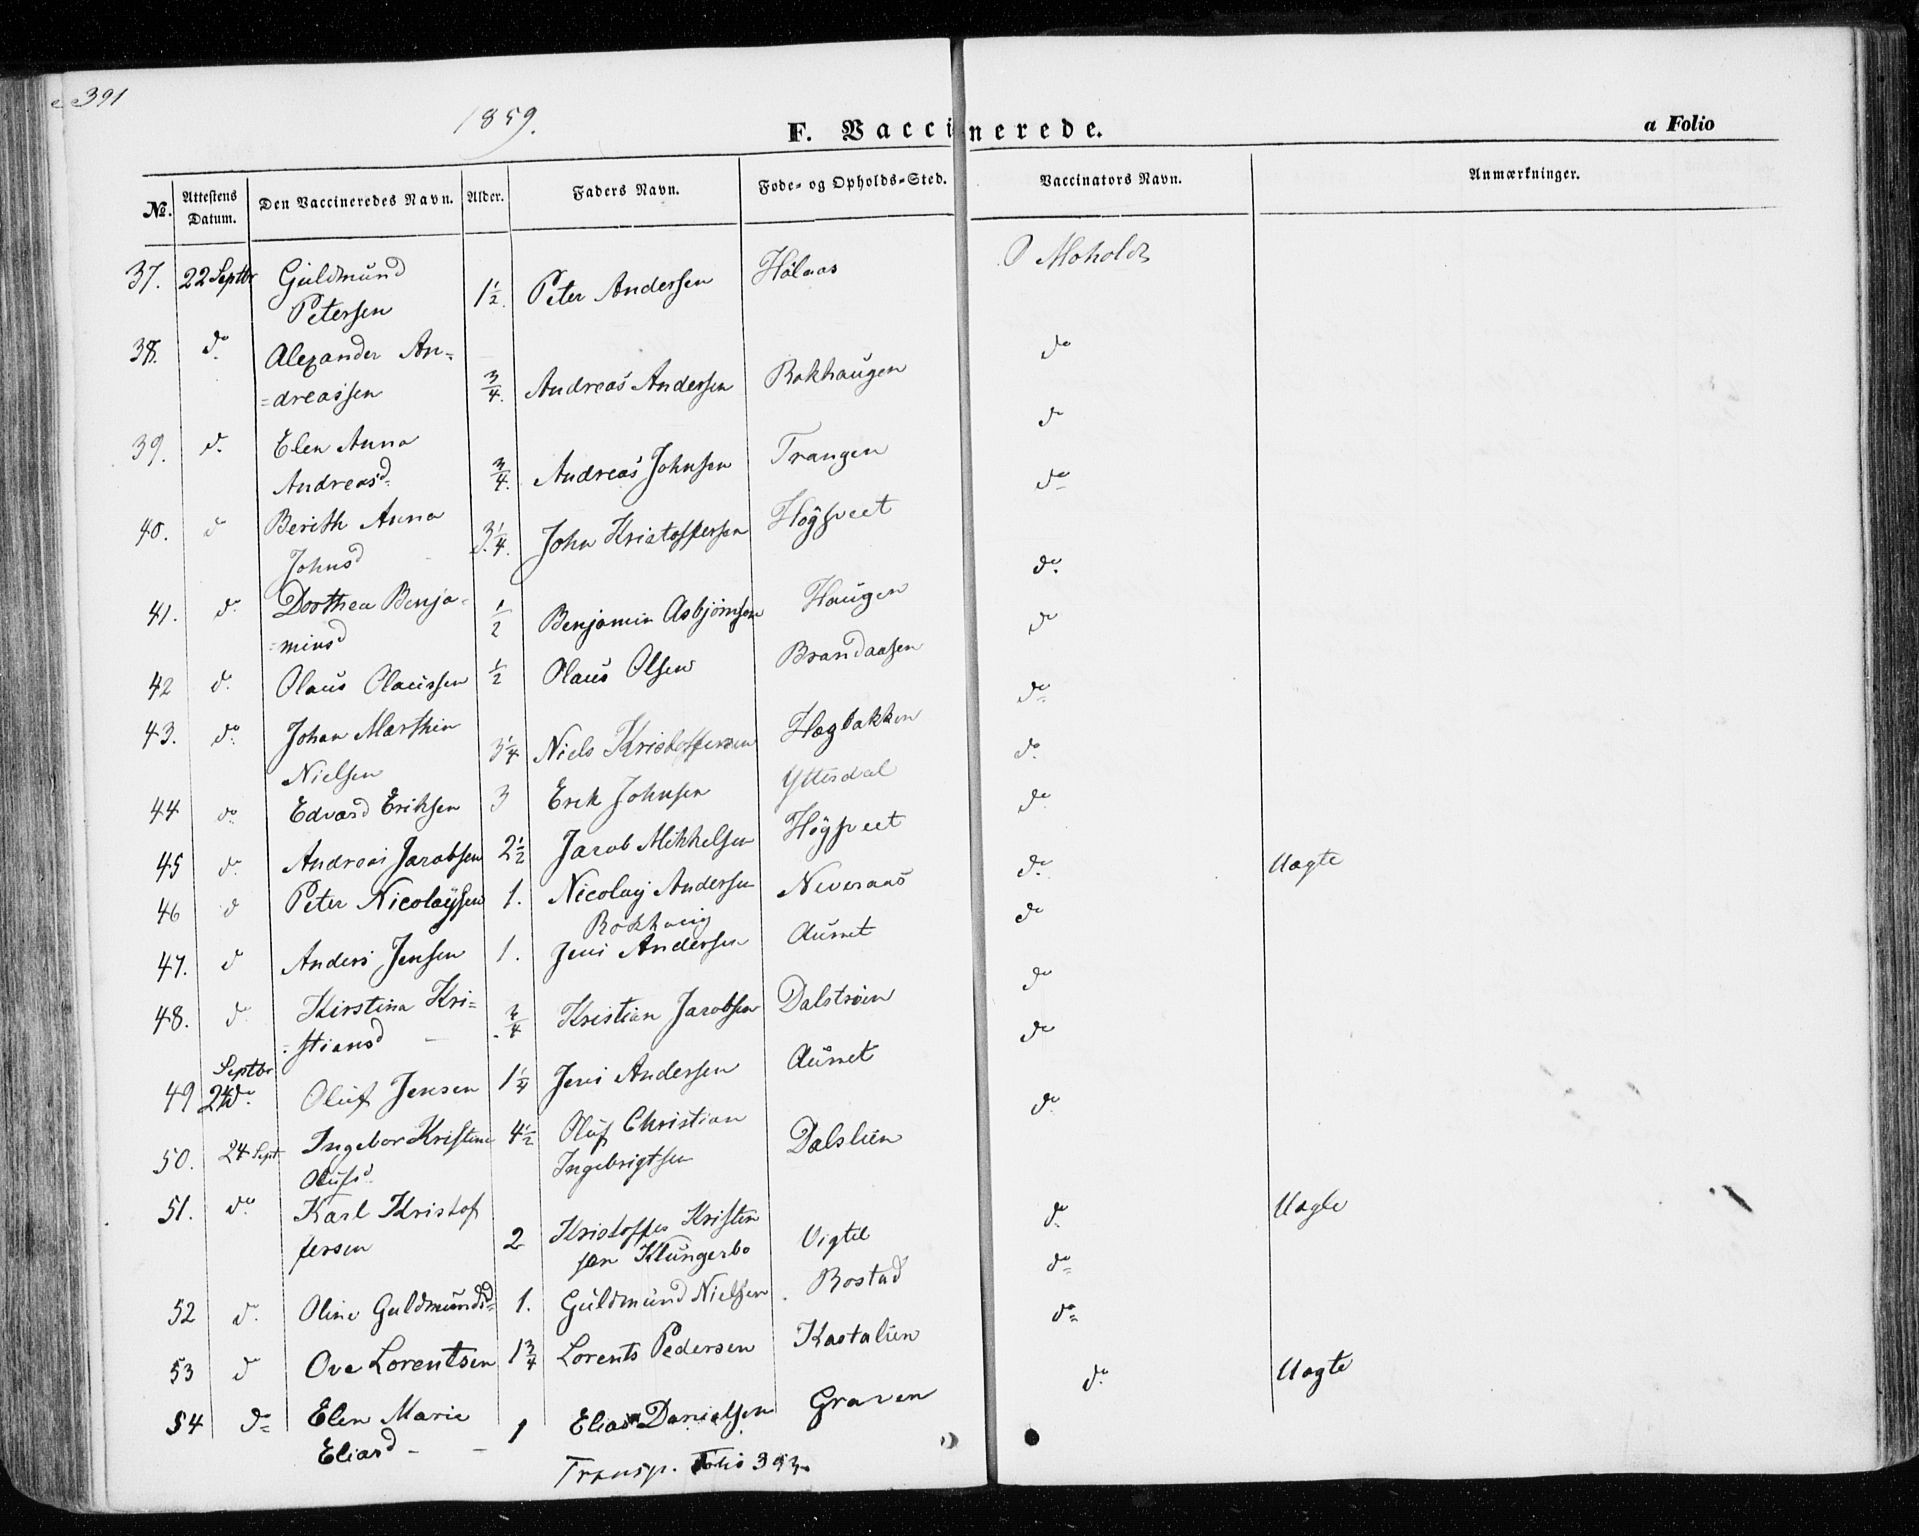 391
1859.
F. Vaccinerede.
a Folio
No. Attestens Datum. Den Vaccineredes Navn. Alder. Faders Navn. Føde- og Opholds-Sted. Vaccinators Navn. Anmærkninger.
37. 22 Septbr Guldmund Petersen 1 1/2. Peter Andersen Hølaas O Moholdt
38. do. Alexander An=
=dreassen 3/4. Andreas Andersen Rokhaugen do
39. d. Elen Anna
Andreasd 3/4. Andreas Johnsen Trangen do
40. d Berith Anna
Johnsd 3 1/4. John Kristoffersen Høgsveet do
41. do Dorthea Benja=
=minsd 1/2 Benjamin Asbjørnsen Haugen do.
42 d. Olaus Olaussen 1/2 Olaus Olsen Brandaasen do
43. do. Johan Marthin
Nielsen 3 1/4 Niels Kristoffersen Hægbakken do
44 do. Edvard Eriksen 3 Erik Johnsen Yttesdal do.
45 do. Andreas Jacobsen 2 1/2 Jacob Mikkelsen Høgsveet do
46 d Peter Nicolaysen 1. Nicolay Andersen Neveraas do. Uægte
Rokhaug
47. d Anders Jensen 1. Jens Andersen Aunet do
48. do Kirstina Kri=
=stiansd 3/4 Kristian Jacobsen Dalstrøen do
Septbr
49 24 do. Oluf Jensen 1 1/4 Jens Andersen Aunet do
50. 24 Sept Ingebor Kristine
Olufsd. 4 1/2 Oluf Christian
Ingebrigtsen Dalslien do.
51. do. Karl Kristof
fersen 2 Kristoffer Kristen
sen Klungerbo Vigtil do. Uægte
52 d. Oline Guldmundsd 1. Guldmund Nielsen Rostad do
53 d Ove Lorentsen 1 3/4 Lorents Pedersen Kastalien do
54 do Elen Marie
Eliasd 1 Elias Danielsen Graven do. Uægte
Transp. Folio 393.